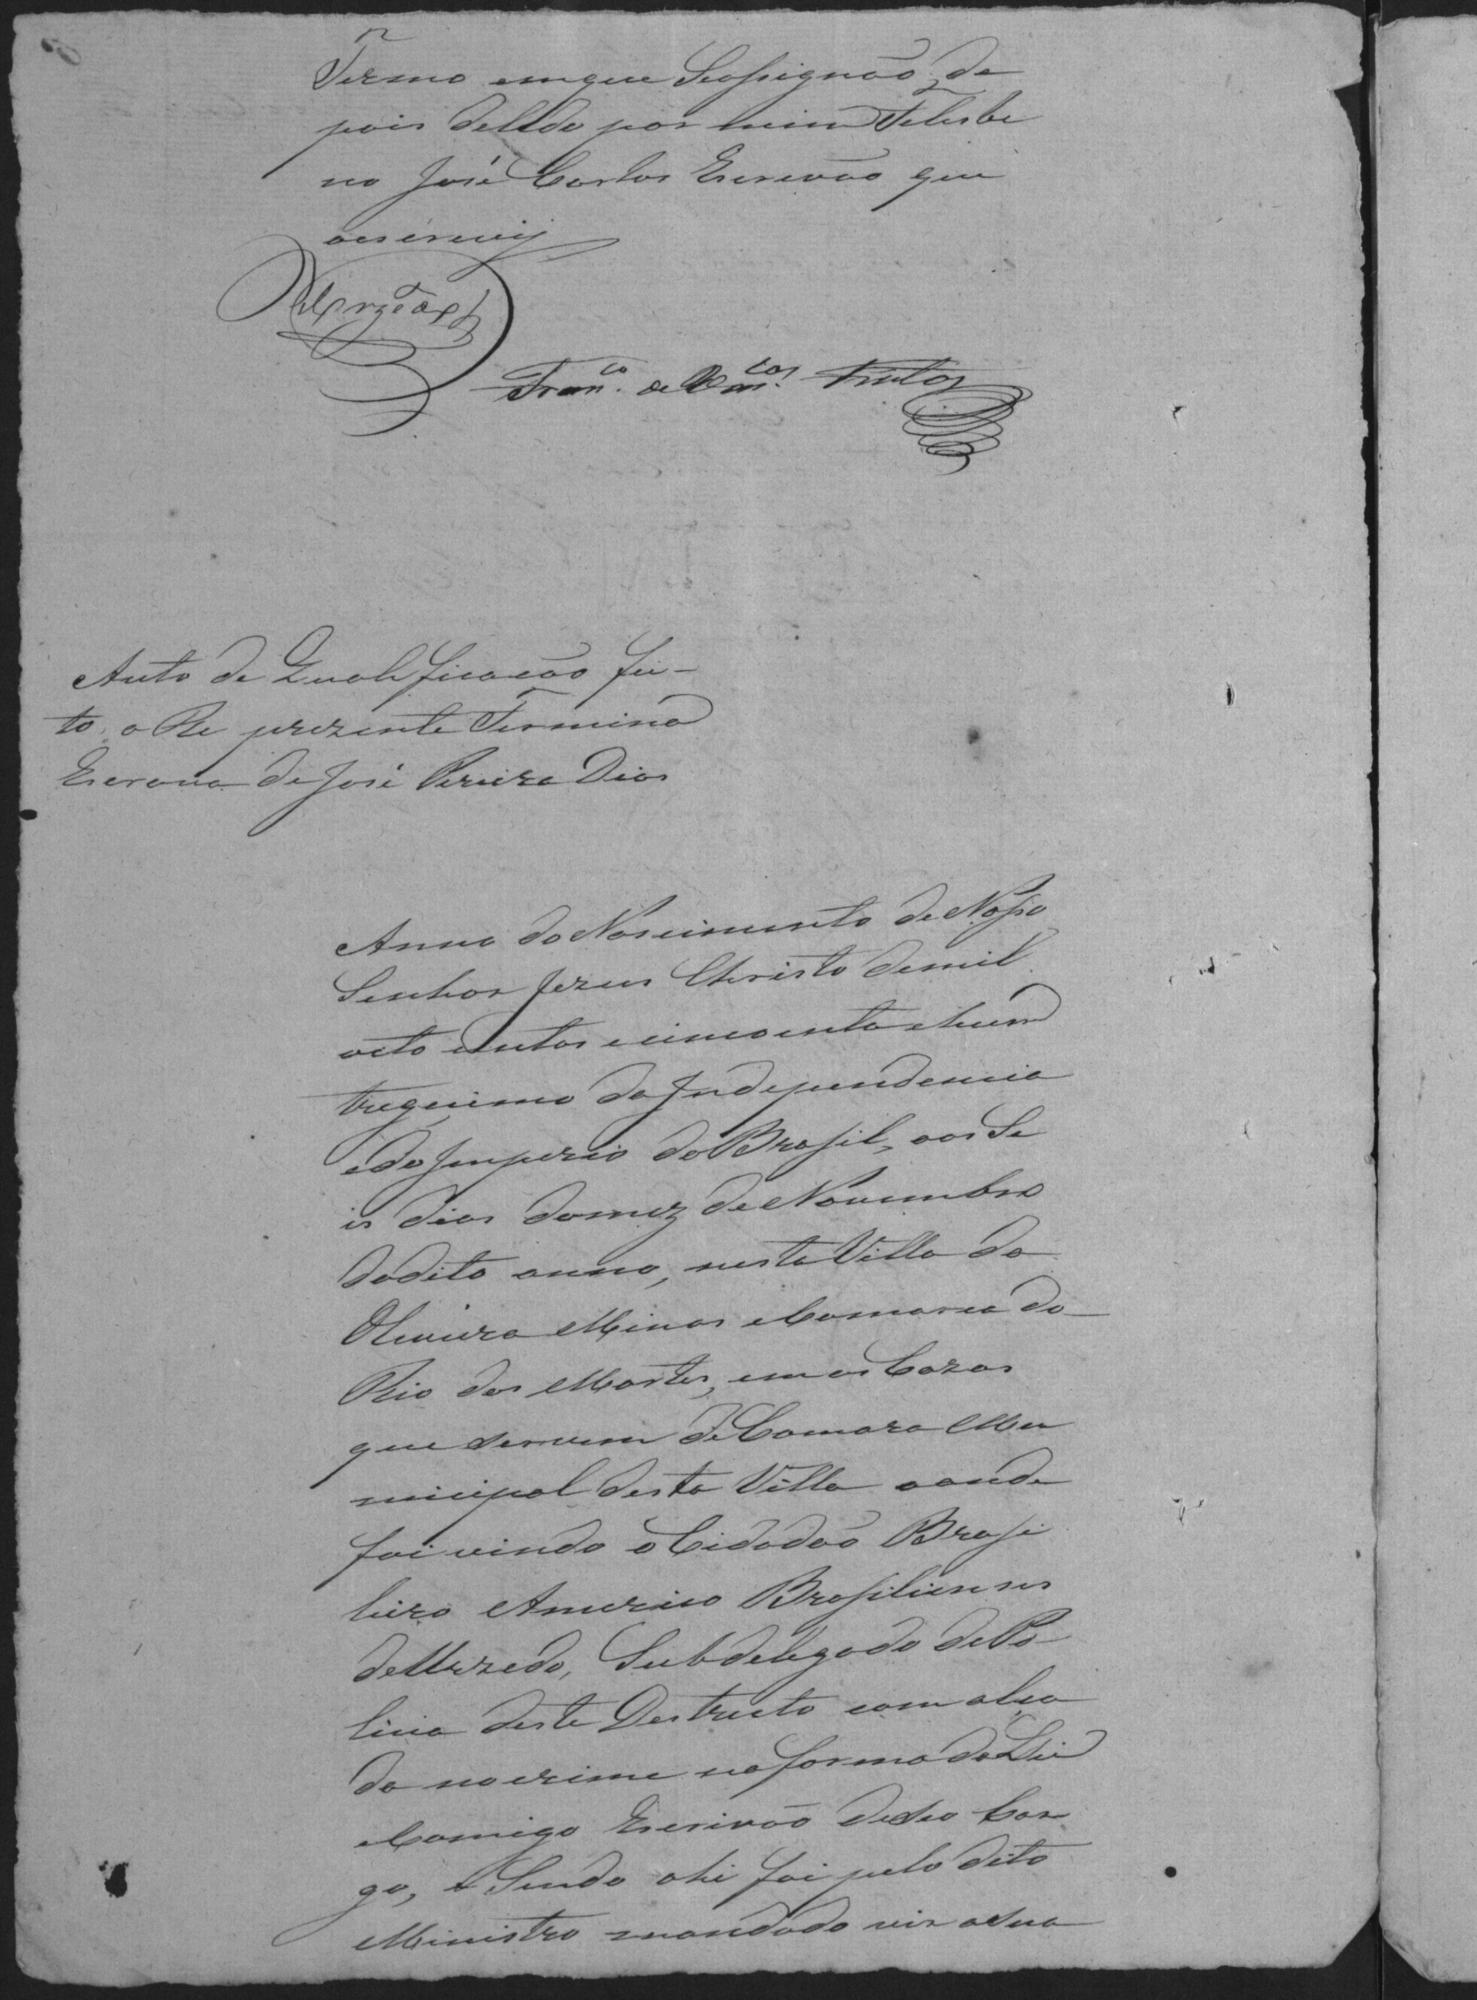 Termo em que Seassignão, de
pois delido por mim Felisbe
no José Carlos Escrivão que
oescrevij
Urzedo
Fran.co de
Auto de Qualificação fei-
to, a Re prezente Fermina
Escrava de José Pereira Dias
Anno do Nascimento de Nosso
Senhor Jezus Christo demil
oito centos e cincoenta ehum
tregecimo da Independencia
edo Imperio do Brasil, aos Se
is dias domez de Novembro
dodito anno, nesta Villa da
Oliveira Minas e Comarca do
Rio das Mortes, em as Cazas
que servem de Camara Mu
nicipal desta Villa aonde
foi vindo o Cidadão Brasi
leiro Americo Brasilienses
de Urzedo, Subdelegado dePo-
licia deste Destricto com alsa
da no crime na forma da Lei
e Comigo Escrivão deseo Car
go, e Sendo ahi foi pelo dito
Ministro mandado vir asua